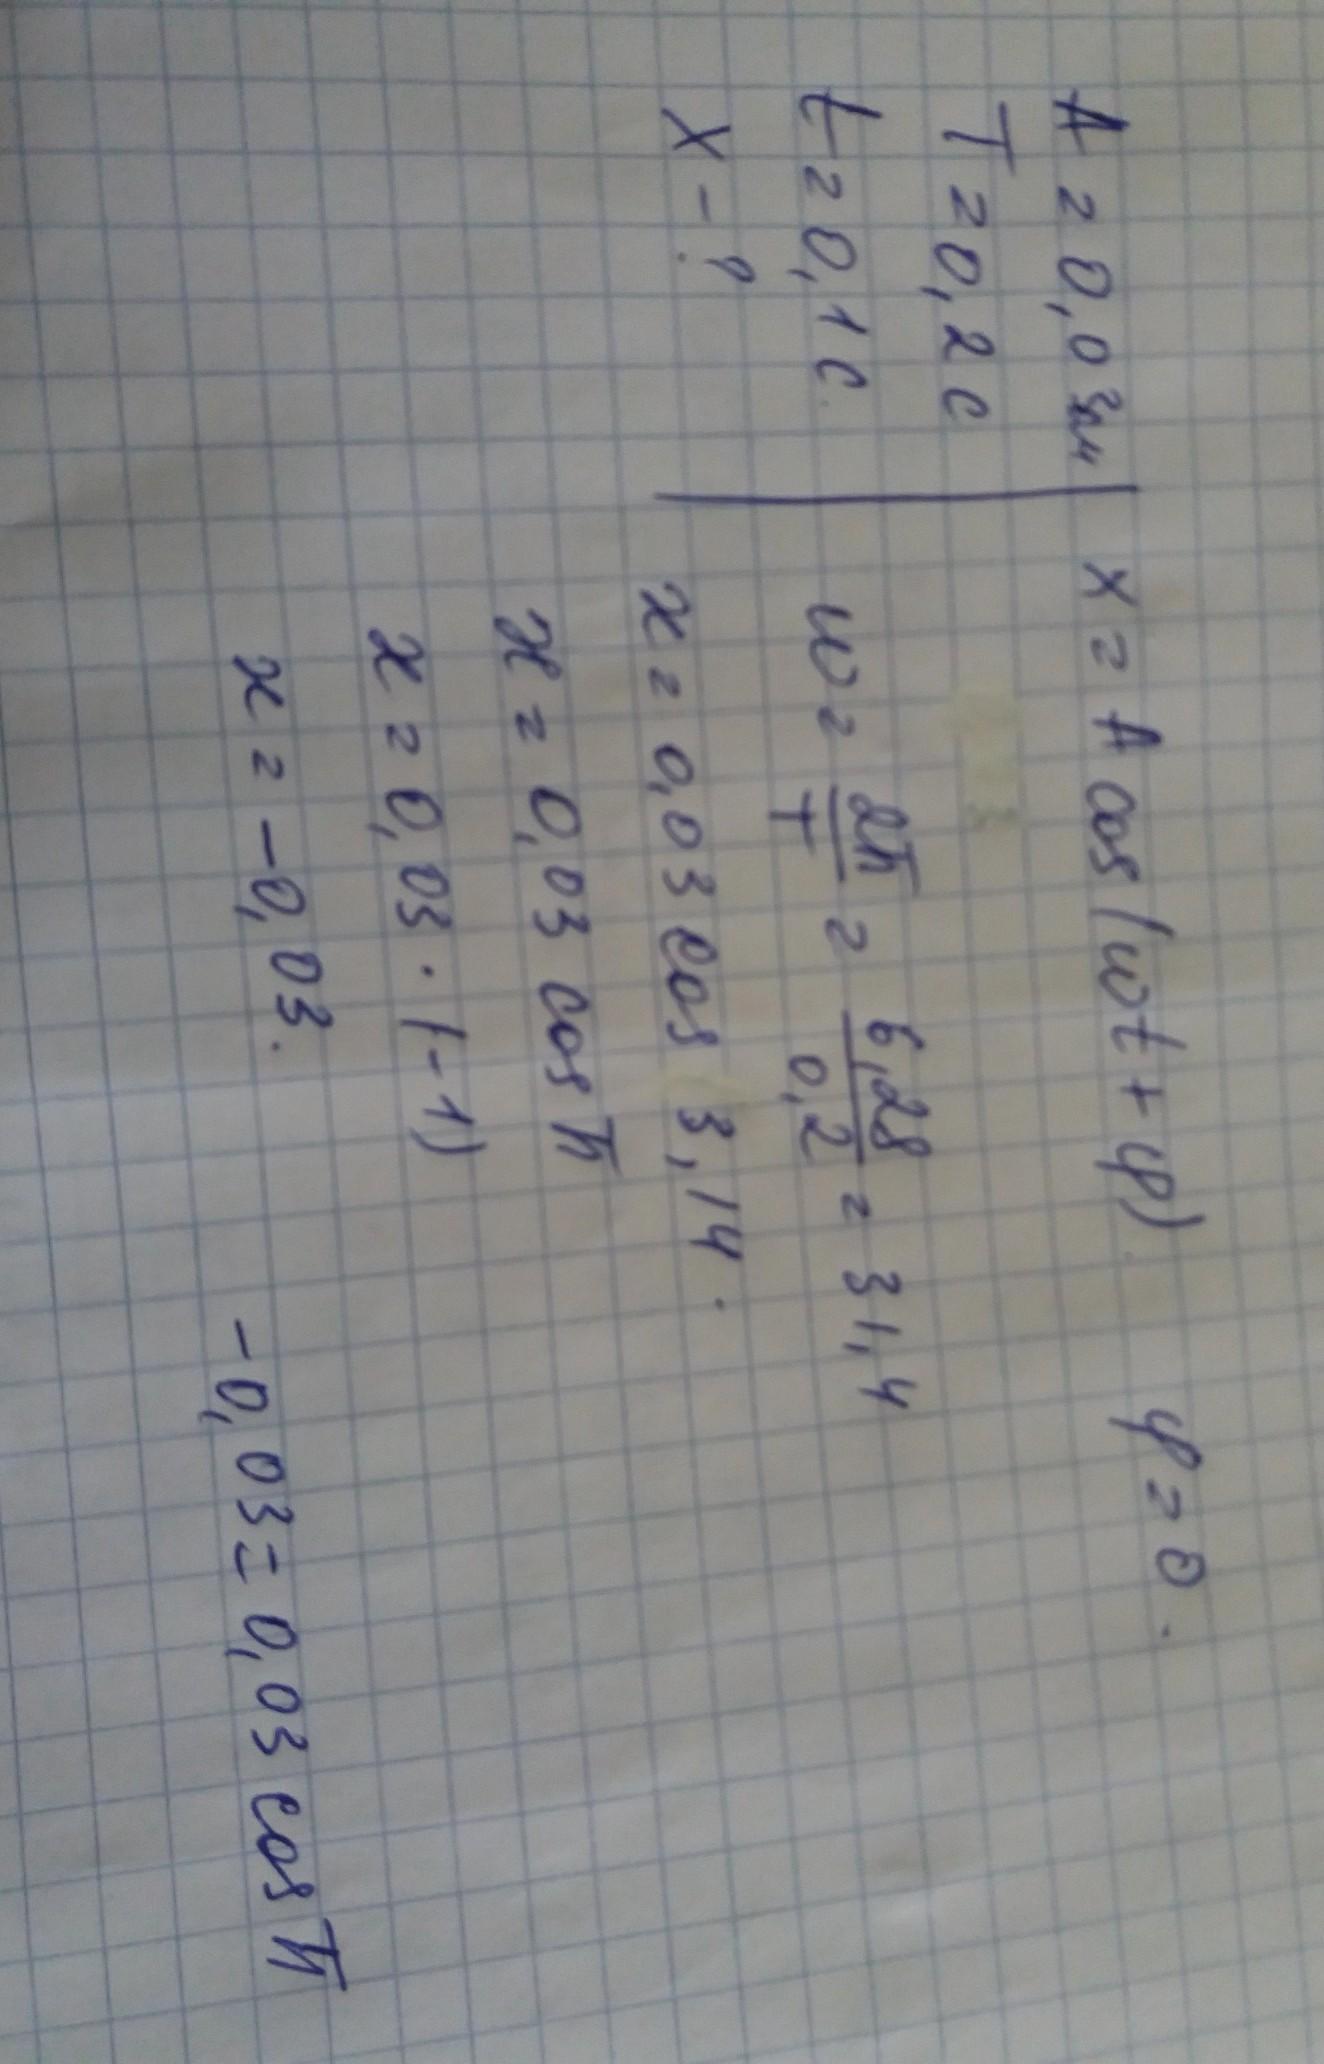 A = 0,03м
T = 0,2 с
t = 0,1 с.
X - ?
x = A cos(ωt + φ). φ = 0.
ω = 2π/T = 6,28/0,2 = 31,4
x = 0,03 cos 3,14.
x = 0,03 cos π
x = 0,03 · (-1)
x = -0,03. -0,03 = 0,03 cos π